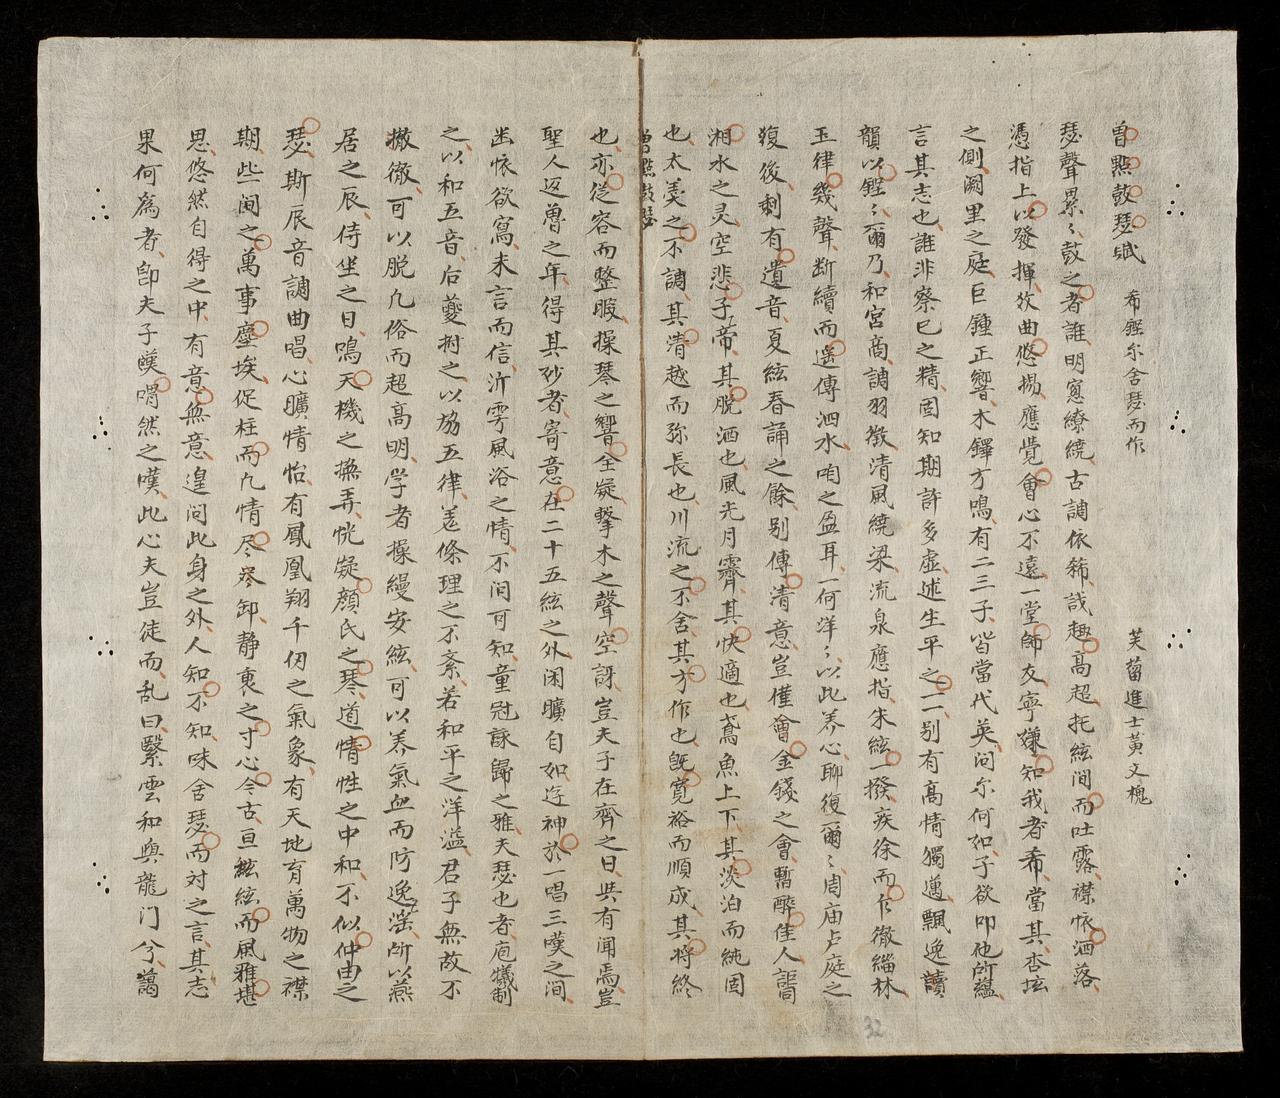 曾點鼓瑟賦 希鏗尔舍瑟而作 芙蒥進士黃文槐
瑟聲累〻鼓之者誰明窓繚繞古調依稀戢趣高超托絃間而吐露襟懷洒落
憑指上以發揮攷曲悠揚應覺會心不遠一堂師友寧嫌知我者希當其杏坛
之側闕里之庭巨鍾正響木鐸方鳴有二三子皆當代英问尔何如子欲叩他所蘊
言其志也誰非察已之精固知期許多虛述生平之一一别有高情獨邁飄逸讀
韻以鏗〻爾乃和宮商調羽徵清風繞梁流泉應指朱絃一撥疾徐而乍徹緇林
玉律幾聲断續而遥傳泗水咱之盈耳一何洋〻以此养心聊復爾〻周庙虍庭之
復後剩有遺音夏絃春誦之餘别傳清意豈僅會金錢之會暫醉佳人詎同
湘水之灵空悲子帝其脱洒也風光月霽其快適也鳶魚上下其淡泊而純固
也太羙之不調其清越而弥長也川流之不舍其方作也旣寬裕而順成其将終
曾點鼓瑟
也亦從容而整暇操琴之響全疑擊木之聲空訝豈夫子在齊之日㒰有闻焉豈
聖人返魯之年得其玅者寄意在二十五絃之外闲曠自如迬神於一唱三嘆之间
㘦懷欲寫未言而信沂雩風浴之情不间可知童冠詠歸之雅夫瑟也者庖犧制
之以和五音后夔拊之以協五律羙條理之不紊若和平之洋溢君子無故不
撤徹可以脱凢俗而超高明学者操縵安絃可以养氣血而防逸滛所以燕
居之辰侍坐之日鳴天機之撫弄恍疑顏氏之琴道情性之中和不似仲由之
瑟斯辰音調曲唱心曠情怡有鳳凰翔千仞之氣象有天地育萬物之襟
期些間之萬事塵埃促柱而凢情尽卷卸静裏之寸心今古亘絃絃而風雅堪
思悠然自得之中有意無意遑问此身之外人知不知味舍瑟而对之言其志
果何為者卽夫子嘆喟然之嘆此心夫豈徒而乱曰繄雲和與龍门兮藹